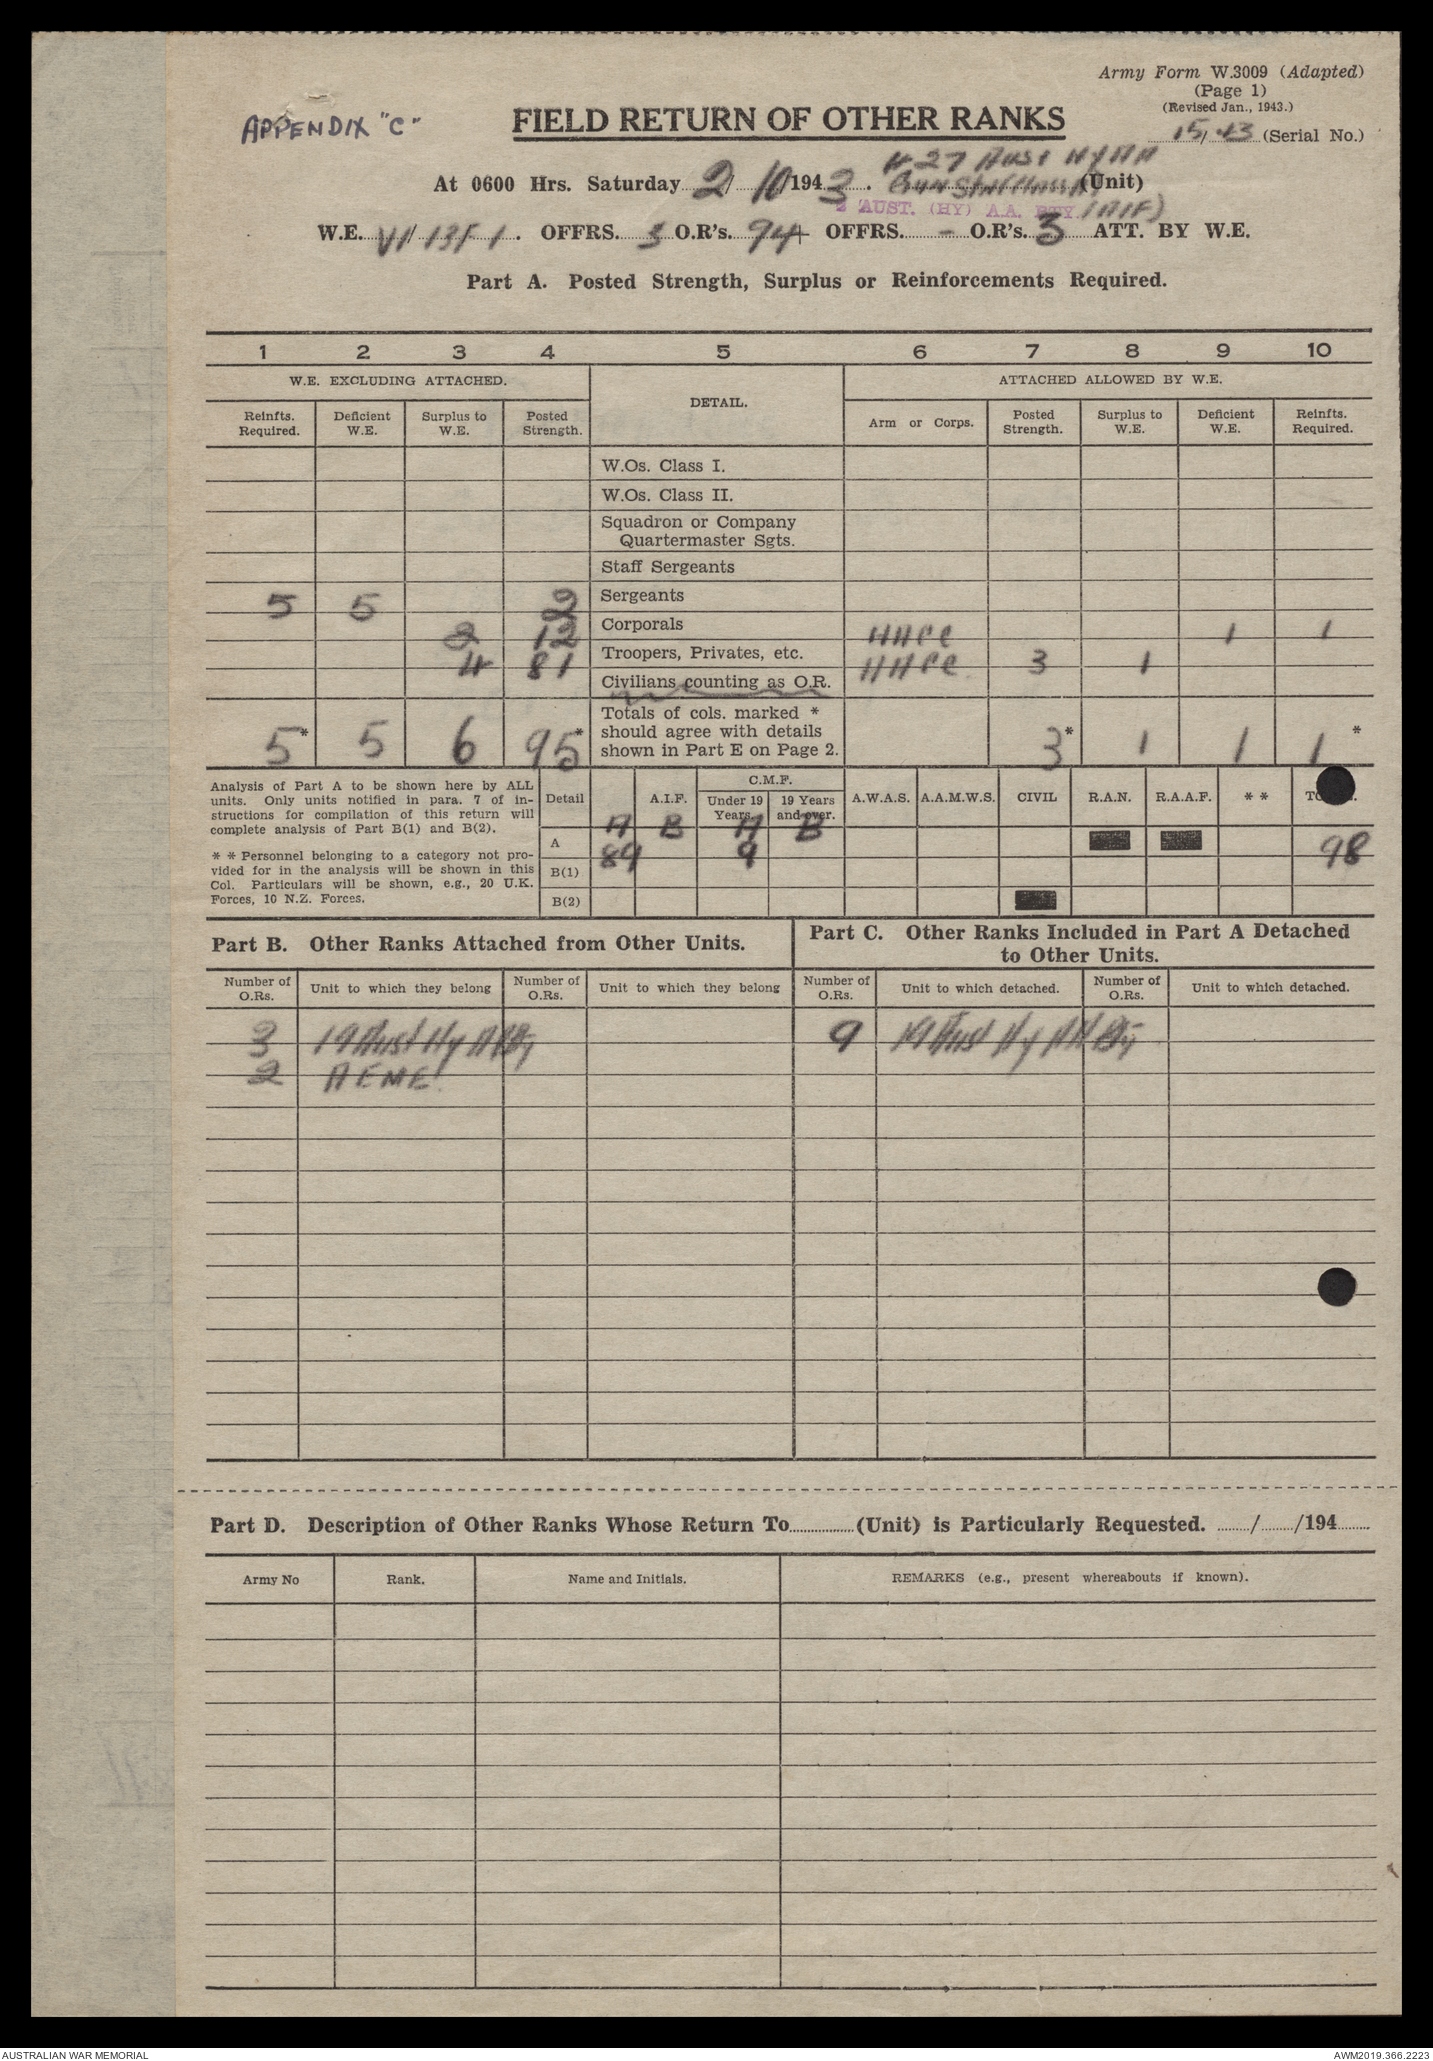 Army Form W.3009 (Adapted)
(Page 1)
(Revised Jan., 1943.)
APPENDIX "C"
FIELD RETURN OF OTHER RANKS
15/43 (Serial No.)
At 0600 Hrs. Saturday 2/10/1943. (Unit)
AUST. (HY) A.A. BTY. (AIF)
W.E. VI/13F/1. OFFRS. 3 O.R's. 94 OFFRS. - O.R's. 3 ATT. BY W.E.
Part A. Posted Strength, Surplus or Reinforcements Required.
1 2 3 4 5 6 7 8 9 10
W.E. EXCLUDING ATTACHED. DETAIL. ATTACHED ALLOWED BY W.E.
Reinfts. Required. Deficient W.E. Surplus to W.E. Posted Strength. Arm or Corps. Posted Strength. Surplus to W.E. Deficient W.E. Reinfts. Required.
W.Os. Class I.
W.Os. Class II.
Squadron or Company
Quartermaster Sgts.
Staff Sergeants
5 5 2 Sergeants
2 12 Corporals AACC 1 1
4 81 Troopers, Privates, etc. AACC 3 1
Civilians counting as O.R.
Totals of cols. marked *
should agree with details
shown in Part E on Page 2.
5* 5 6 95* 3* 1 1 1*
Analysis of Part A to be shown here by ALL
units. Only units notified in para. 7 of in-
structions for compilation of this return will
complete analysis of Part B(1) and B(2).
* * Personnel belonging to a category not pro-
vided for in the analysis will be shown in this
Col. Particulars will be shown, e.g., 20 U.K.
Forces, 10 N.Z. Forces.
C.M.F.
Detail A.I.F. Under 19 Years. 19 Years and over. A.W.A.S. A.A.M.W.S. CIVIL R.A.N. R.A.A.F. * *
A B A B
A 89 9 98
B(1)
B(2)
Part B. Other Ranks Attached from Other Units.
Part C. Other Ranks Included in Part A Detached
to Other Units.
Number of O.Rs. Unit to which they belong Number of O.Rs. Unit to which they belong Number of O.Rs. Unit to which detached. Number of O.Rs. Unit to which detached.
3 19 Aust Hy AA Bty 9 19 Aust Hy AA Bty
2 AEME
Part D. Description of Other Ranks Whose Return To............(Unit) is Particularly Requested. ......../......../194........
Army No Rank. Name and Initials. REMARKS (e.g., present whereabouts if known).
AUSTRALIAN WAR MEMORIAL
AWM2019.366.2223